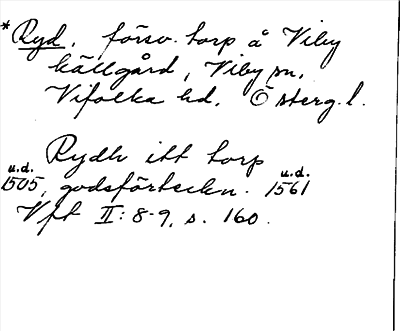 *Ryd, försv. torp å Viby
källgård, Viby sn,
Vifolka hd. Österg. l.
Rydh itt torp
u.d. 1505, godsförteckn. u.d. 1561
Vft II: 8-9, s. 160.